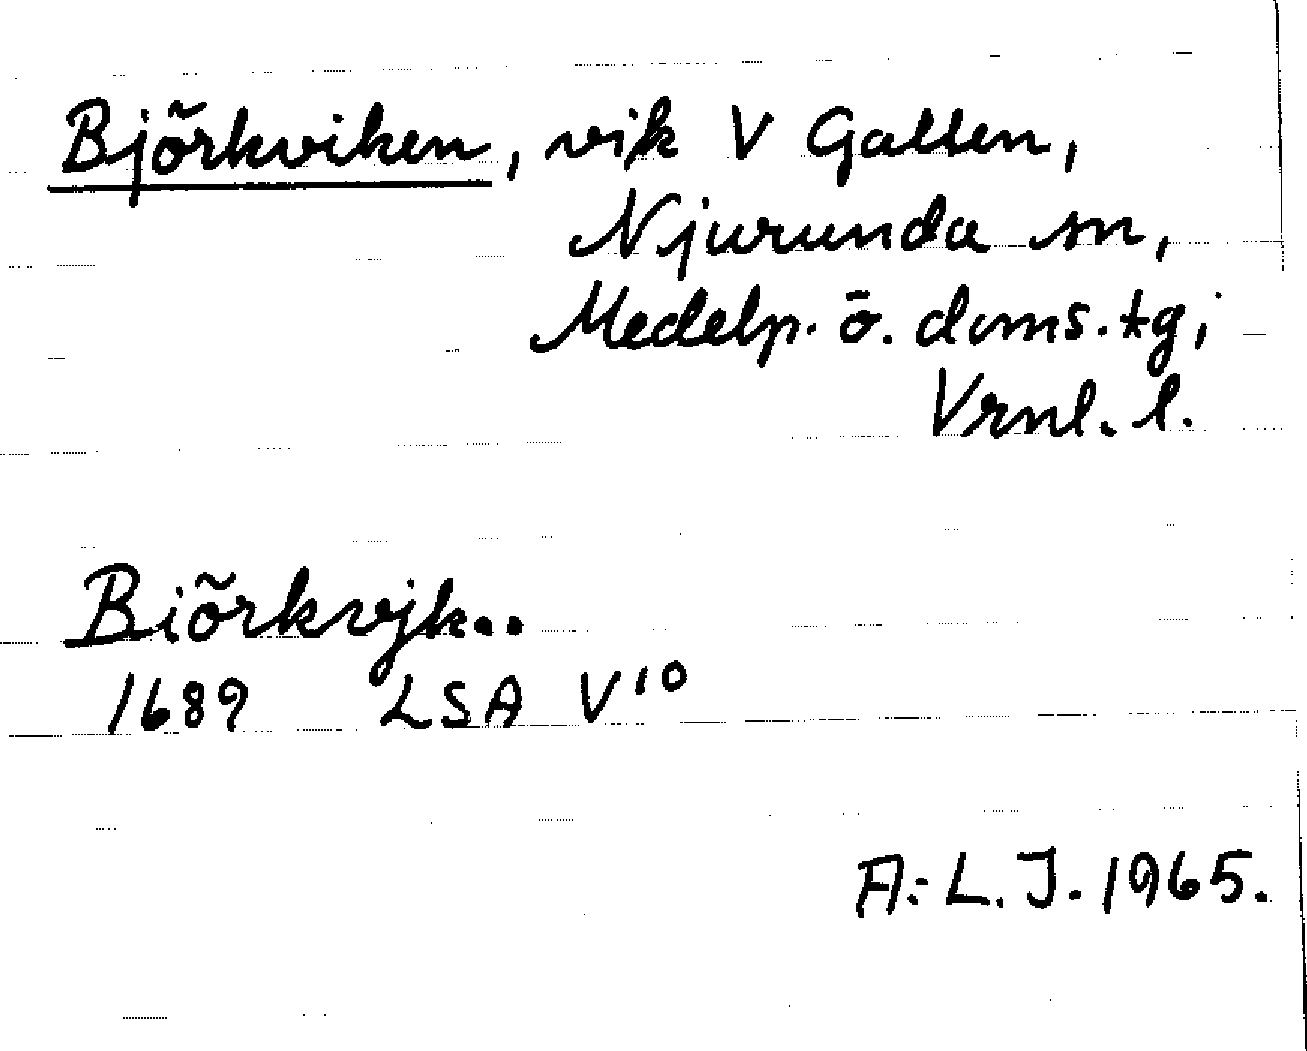 Björkviken, vik V Galten,
Njurunda sn,
Medelp. ö. doms.tg;
Vrnl. l.
Biörkvjk..
1689 LSA V¹⁰
A:L.J. 1965.